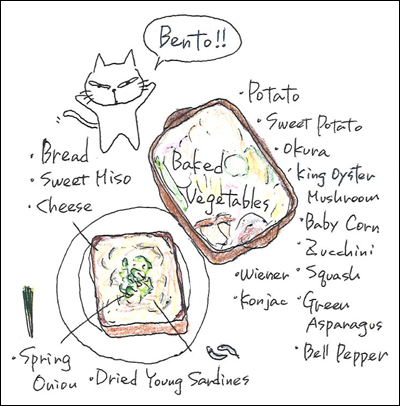 Bento!!
• Bread
• Sweet Miso
• Cheese
Baked
Vegetables
• Potato
• Sweet Potato
• Okura
• King Oyster
Mushroom
• Baby Corn
• Zucchini
• Wiener
• Squash
• Konjac
• Green
Asparagus
• Bell Pepper
• Spring
Onion
• Dried Young Sardines